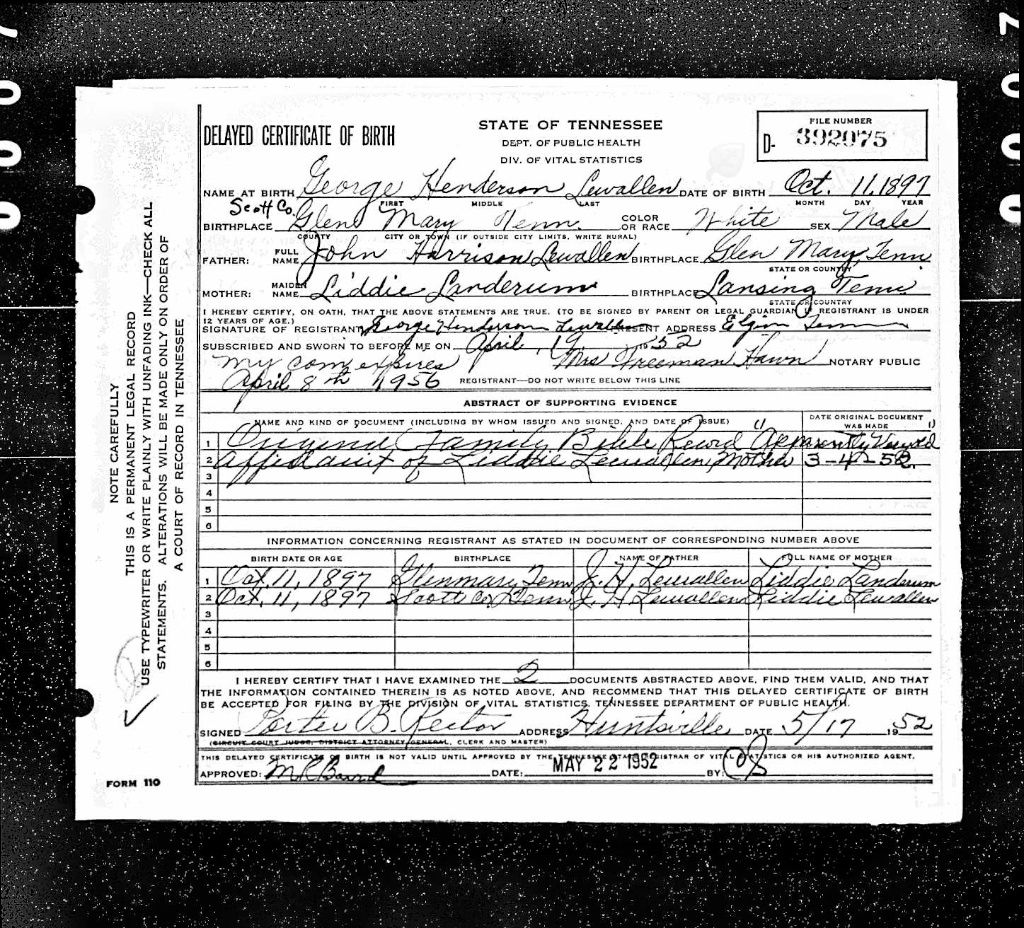 0007
0007
NOTE CAREFULLY
THIS IS A PERMANENT LEGAL RECORD
USE TYPEWRITER OR WRITE PLAINLY WITH UNFADING INK—CHECK ALL
STATEMENTS. ALTERATIONS WILL BE MADE ONLY ON ORDER OF
A COURT OF RECORD IN TENNESSEE
FORM 110
DELAYED CERTIFICATE OF BIRTH
STATE OF TENNESSEE
DEPT. OF PUBLIC HEALTH
DIV. OF VITAL STATISTICS
FILE NUMBER
D- 392075
NAME AT BIRTH George Henderson Lewallen DATE OF BIRTH Oct. 11, 1897
FIRST MIDDLE LAST MONTH DAY YEAR
Scott Co.
BIRTHPLACE Glen Mary Tenn. COLOR OR RACE White SEX Male
COUNTY CITY OR TOWN (IF OUTSIDE CITY LIMITS, WRITE RURAL)
FATHER: FULL NAME John Harrison Lewallen BIRTHPLACE Glen Mary Tenn
STATE OR COUNTRY
MOTHER: MAIDEN NAME Liddie Landerum BIRTHPLACE Lansing Tenn
STATE OR COUNTRY
I HEREBY CERTIFY, ON OATH, THAT THE ABOVE STATEMENTS ARE TRUE. (TO BE SIGNED BY PARENT OR LEGAL GUARDIAN IF REGISTRANT IS UNDER
12 YEARS OF AGE.)
SIGNATURE OF REGISTRANT George Henderson Lewallen PRESENT ADDRESS Elgin Tenn
SUBSCRIBED AND SWORN TO BEFORE ME ON April, 19 1952
My com expires Mrs Freeman Hawn NOTARY PUBLIC
April 8th 1956 REGISTRANT—DO NOT WRITE BELOW THIS LINE
ABSTRACT OF SUPPORTING EVIDENCE
NAME AND KIND OF DOCUMENT (INCLUDING BY WHOM ISSUED AND SIGNED, AND DATE OF ISSUE) DATE ORIGINAL DOCUMENT WAS MADE
1 Original Family Bible Record "Apparently
2 Affidavit of Liddie Lewallen, Mother 3-4-52
3
4
5
6
INFORMATION CONCERNING REGISTRANT AS STATED IN DOCUMENT OF CORRESPONDING NUMBER ABOVE
BIRTH DATE OR AGE BIRTHPLACE NAME OF FATHER FULL NAME OF MOTHER
1 Oct. 11, 1897 Glenmary, Tenn J. H. Lewallen Liddie Landerum
2 Oct. 11, 1897 Scott Co, Tenn J. H Lewallen Liddie Lewallen
3
4
5
6
I HEREBY CERTIFY THAT I HAVE EXAMINED THE 2 DOCUMENTS ABSTRACTED ABOVE, FIND THEM VALID, AND THAT
THE INFORMATION CONTAINED THEREIN IS AS NOTED ABOVE, AND RECOMMEND THAT THIS DELAYED CERTIFICATE OF BIRTH
BE ACCEPTED FOR FILING BY THE DIVISION OF VITAL STATISTICS, TENNESSEE DEPARTMENT OF PUBLIC HEALTH.
SIGNED Porter B. Rector ADDRESS Huntsville DATE 5/17 1952
(CIRCUIT COURT JUDGE, DISTRICT ATTORNEY GENERAL, CLERK AND MASTER)
THIS DELAYED CERTIFICATE OF BIRTH IS NOT VALID UNTIL APPROVED BY THE TENNESSEE STATE REGISTRAR OF VITAL STATISTICS OR HIS AUTHORIZED AGENT.
APPROVED: DATE: MAY 22 1952 BY: